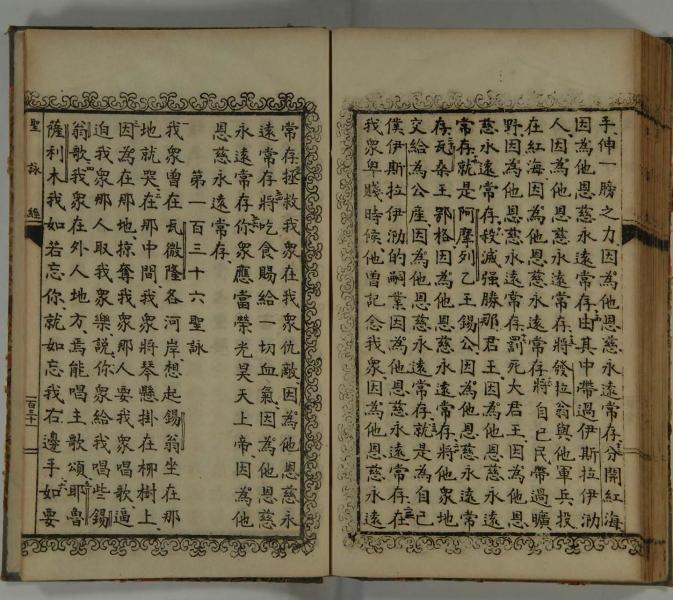 手伸一膀之力因為他恩慈永遠常存分開紅海
因為他恩慈永遠常存由其中帶過伊斯拉伊泐
人因為他恩慈永遠常存將發拉翁與他軍兵投
在紅海因為他恩慈永遠常存將自己民帶過曠
野因為他恩慈永遠常存罰死大君王因為他恩
慈永遠常存殺滅强勝那君王因為他恩慈永遠
常存就是阿摩列乙王錫公因為他恩慈永遠常
存瓦桑王鄂格因為他恩慈永遠常存將他衆地
交給為公座因為他恩慈永遠常存就是為自己
僕伊斯拉伊泐的嗣業因為他恩慈永遠常存在
我衆卑賤時候他曾記念我衆因為他恩慈永遠
常存拯救我衆在我衆仇敵因為他恩慈永
遠常存將吃食賜給一切血氣因為他恩慈
永遠常存你衆應當榮光昊天上帝因為他
恩慈永遠常存
第一百三十六聖詠
我衆曾在瓦微隆各河岸想起錫翁坐在那
地就哭在那中間我衆將琴懸掛在柳樹上
因為在那地掠奪我衆那人要我衆唱歌逼
迫我衆那人取我衆樂說你衆給我唱些錫
翁歌我衆在外人地方焉能唱主歌頌耶魯
薩利木我如若忘你就如忘我右邊手如要
聖詠經
一百三十